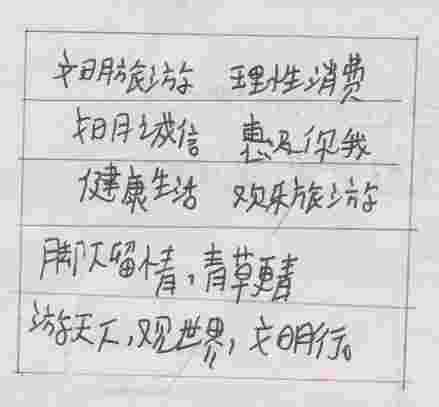 文明旅游 理性消费
文明诚信 惠及你我
健康生活 欢乐旅游
脚下留情，青草更青
游天下，观世界，文明行。